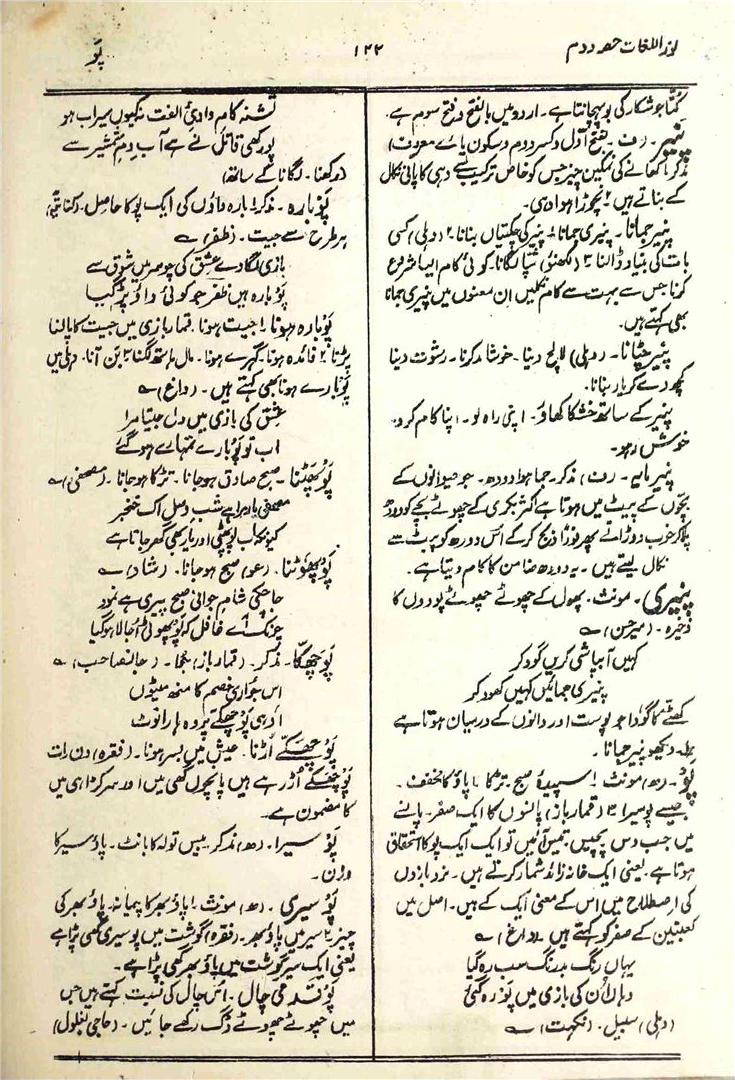 نور اللغات حصہ دوم
۱۴۲
پَو
کتا جو شکار کی بو پہچانتا ہے۔ اردو میں بالفتح و فتح سوم ہے۔
پَنِیر۔ (ف۔ بفتح اول و کسر دوم و سکون یائے معروف)
مذکر۔ ۱ کھانے کی نمکین چیز جس کو خاص ترکیب سے دہی کا پانی نکال
کے بناتے ہیں ۲ نچوڑا ہوا دہی۔
پنیر جمانا۔ پنیری جمانا ۱ پنیر کی چکتیاں بنانا ۲ (دہلی) کسی
بات کی بنیاد ڈالنا ۳ (لکھنؤ) ٹپا لگانا۔ کوئی کام ایسا شروع
کرنا جس سے بہت سے کام نکلیں ان معنوں میں پنیری جمانا
بھی کہتے ہیں۔
پنیر چٹانا۔ (دہلی) لالچ دینا۔ خوشامد کرنا۔ رشوت دینا
کچھ دے کر یار بنانا۔
پنیر کے ساتھ خشکا کھاؤ۔ اپنی راہ لو۔ اپنا کام کرو۔
خوش رہو۔
پنیر مایہ۔ (ف) مذکر۔ جما ہوا دودھ۔ جو حیوانوں کے
بچوں کے پیٹ میں ہوتا ہے اکثر بکری کے چھوٹے بچے کو دودھ
پلا کر خوب دوڑاتے پھر فوراً ذبح کر کے اس دودھ کو پیٹ سے
نکال لیتے ہیں۔ یہ دودھ ضامن کا کام دیتا ہے۔
پَنِیری۔ مونث۔ پھول کے چھوٹے چھوٹے پودوں کا
ذخیرہ۔ (میر حسن) ؎
کہیں آبپاشی کریں گود کر
پنیری جمائیں کہیں کھود کر
کھٹے کا گودا جو پوست اور دانوں کے درمیان ہوتا ہے
دیکھو پنیر جمانا۔
پَو۔ (ھ) مونث ۱ سپیدۂ صبح۔ تڑکا ۲ پاؤ کا مخفف۔
جیسے پوسیرا ۳ (قمار باز) پانسوں کا ایک صفر۔ پانسے
میں جب دس پچیس تیس آئیں تو ایک ایک پو کا استحقاق
ہوتا ہے یعنی ایک خانہ زائد شمار کرتے ہیں۔ نرد بازوں
کی اصطلاح میں اس کے معنی ایک کے ہیں۔ اصل میں
کعبتین کے صفر کو کہتے ہیں (داغ) ؎
یہاں رنگ بدرنگ سب رہ گیا
وہاں اُن کی بازی میں پَو رہ گئی
(دہلی) سبیل۔ (نکہت) ؎
تشنہ کام وادئ الفت نہ کیوں سیراب ہو
پو رکھی قاتل نے ہے آبِ دمِ شمشیر سے
(رکھنا۔ لگانا کے ساتھ)
پَو بارہ۔ مذکر ۱ بارہ داؤں کی ایک پو کا حاصل۔
ہر طرح سے جیت۔ (ظفر) ؎
بازی لگا دے عشق کی چوسر میں شوق سے
پو بارہ ہیں ظفر جو کوئی داؤ پڑ گیا
پَو بارہ ہونا ۱ جیت ہونا۔ قمار بازی میں جیت کا پانسا
پڑنا ۲ فائدہ ہونا۔ گہرے ہونا۔ مال ہاتھ لگنا ۳ بن آنا۔ دہلی میں
پَو بارے ہونا بھی کہتے ہیں۔ (داغ) ؎
عشق کی بازی میں دل جیتا مرا
اب تو پَو بارے تمہارے ہو گئے
پَو پھٹنا۔ صبح صادق ہو جانا۔ تڑکا ہو جانا۔ (مصحفی) ؎
مصحفی یار مرا ہے شبِ وصل اک خنجر
کیونکہ اب پو پھٹی اور یار بھی گھر جاتا ہے
پَو پھوٹنا۔ (عو) صبح ہو جانا۔ (رشاد) ؎
جا چکی شامِ جوانی صبح پیری ہے نمود
چونک اے غافل کہ پو پھوٹی اُجالا ہو گیا
پَو چھکا۔ مذکر۔ (قمار باز) جُوا۔ (جانصاحب) ؎
اس جواری خصم کا منھ میٹوں
اوہی پو چھکے پر وہ ہارا نوٹ
پَو چھکے اُڑنا۔ عیش میں بسر ہونا۔ (فقرہ) دن رات
پَو چھکے اُڑ رہے ہیں پانچوں گھی میں اور سر کڑاہی میں
کا مضمون ہے۔
پَو سیرا۔ (ھ) مذکر۔ بیس تولہ کا بانٹ۔ پاؤ سیر کا
وزن۔
پَو سیری۔ (ھ) مونث۔ ۱ پاؤ بھر کا پیمانہ۔ پاؤ بھر کی
چیز ۲ سیر میں پاؤ بھر۔ (فقرہ) گوشت میں پو سیری گھی پڑا ہے
یعنی ایک سیر گوشت میں پاؤ بھر گھی پڑا ہے۔
پَو قدمی چال۔ اُس چال کی نسبت کہتے ہیں جس
میں چھوٹے چھوٹے ڈگ رکھے جائیں۔ (حاجی بغلول)